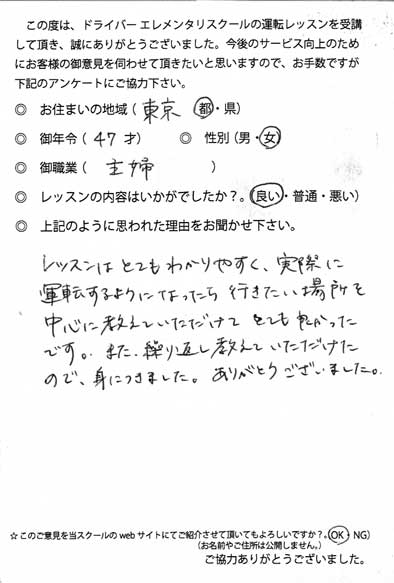 この度は、ドライバー エレメンタリスクールの運転レッスンを受講
して頂き、誠にありがとうございました。今後のサービス向上のため
にお客様の御意見を伺わせて頂きたいと思いますので、お手数ですが
下記のアンケートにご協力下さい。
◎ お住まいの地域(東京 都・県)
◎ 御年令(47 才) ◎ 性別(男・女)
◎ 御職業(主婦)
◎ レッスンの内容はいかがでしたか?。(良い・普通・悪い)
◎ 上記のように思われた理由をお聞かせ下さい。
レッスンは とても わかりやすく、実際に
運転するようになったら 行きたい場所を
中心に教えていただけて とても良かった
です。また、繰り返し教えていただけた
ので、身につきました。ありがとうございました。
☆このご意見を当スクールの web サイトにてご紹介させて頂いてもよろしいですか?。(OK・NG)
(お名前やご住所は公開しません。)
ご協力ありがとうございました。